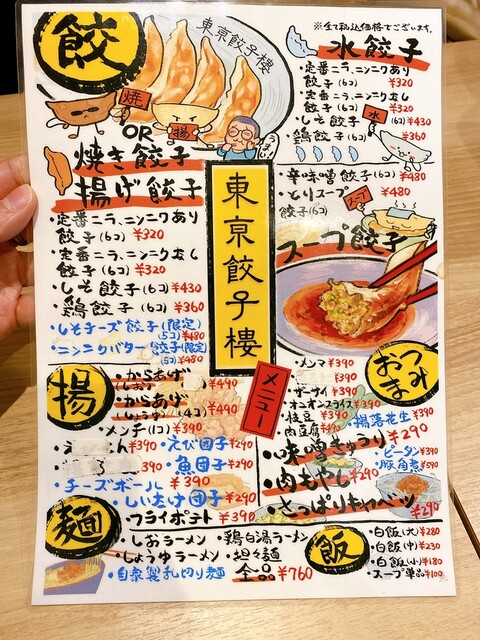 餃
東京餃子樓
焼
揚
OR
うまい
焼き餃子
揚げ餃子
・定番ニラ、ニンニクあり
餃子(6コ) ¥320
・定番ニラ、ニンニクなし
餃子(6コ) ¥320
・しそ餃子(6コ) ¥430
・鶏餃子(6コ) ¥360
・しそチーズ餃子(限定)
(5コ) ¥480
・ニンニクバター餃子(限定)
(5コ) ¥480
※全て税込価格でございます。
水餃子
・定番ニラ、ニンニクあり
餃子(6コ) ¥320
・定番ニラ、ニンニクなし
餃子(6コ) ¥320
・しそ餃子(6コ) ¥430
・鶏餃子(6コ) ¥360
水
・辛味噌餃子(6コ) ¥480
・とりスープ ¥480
餃子(6コ)
スープ
スープ餃子
東京餃子樓
メニュー
揚
・からあげ
(しお) ¥490
・からあげ
(しょうゆ)(4コ) ¥490
・メンチ(1コ) ¥190
¥390
・えび団子 ¥290
¥390
・魚団子 ¥290
・チーズボール ¥390
・しいたけ団子 ¥290
・フライポテト ¥390
おつまみ
・メンマ ¥390
¥390
・ザーサイ ¥390
・オニオンスライス ¥390
・枝豆 ¥390
・肉豆腐 ¥490
・揚落花生 ¥390
・味噌きゅうり ¥290
・肉もやし ¥290
・さっぱりキャベツ ¥290
・ピータン ¥390
・豚角煮 ¥590
麺
・しおラーメン
・鶏白湯ラーメン
・しょうゆラーメン
・担々麺
・自家製乱切り麺
全品 ¥760
飯
・白飯(大) ¥280
・白飯(中) ¥230
・白飯(小) ¥180
・スープ単品 ¥100